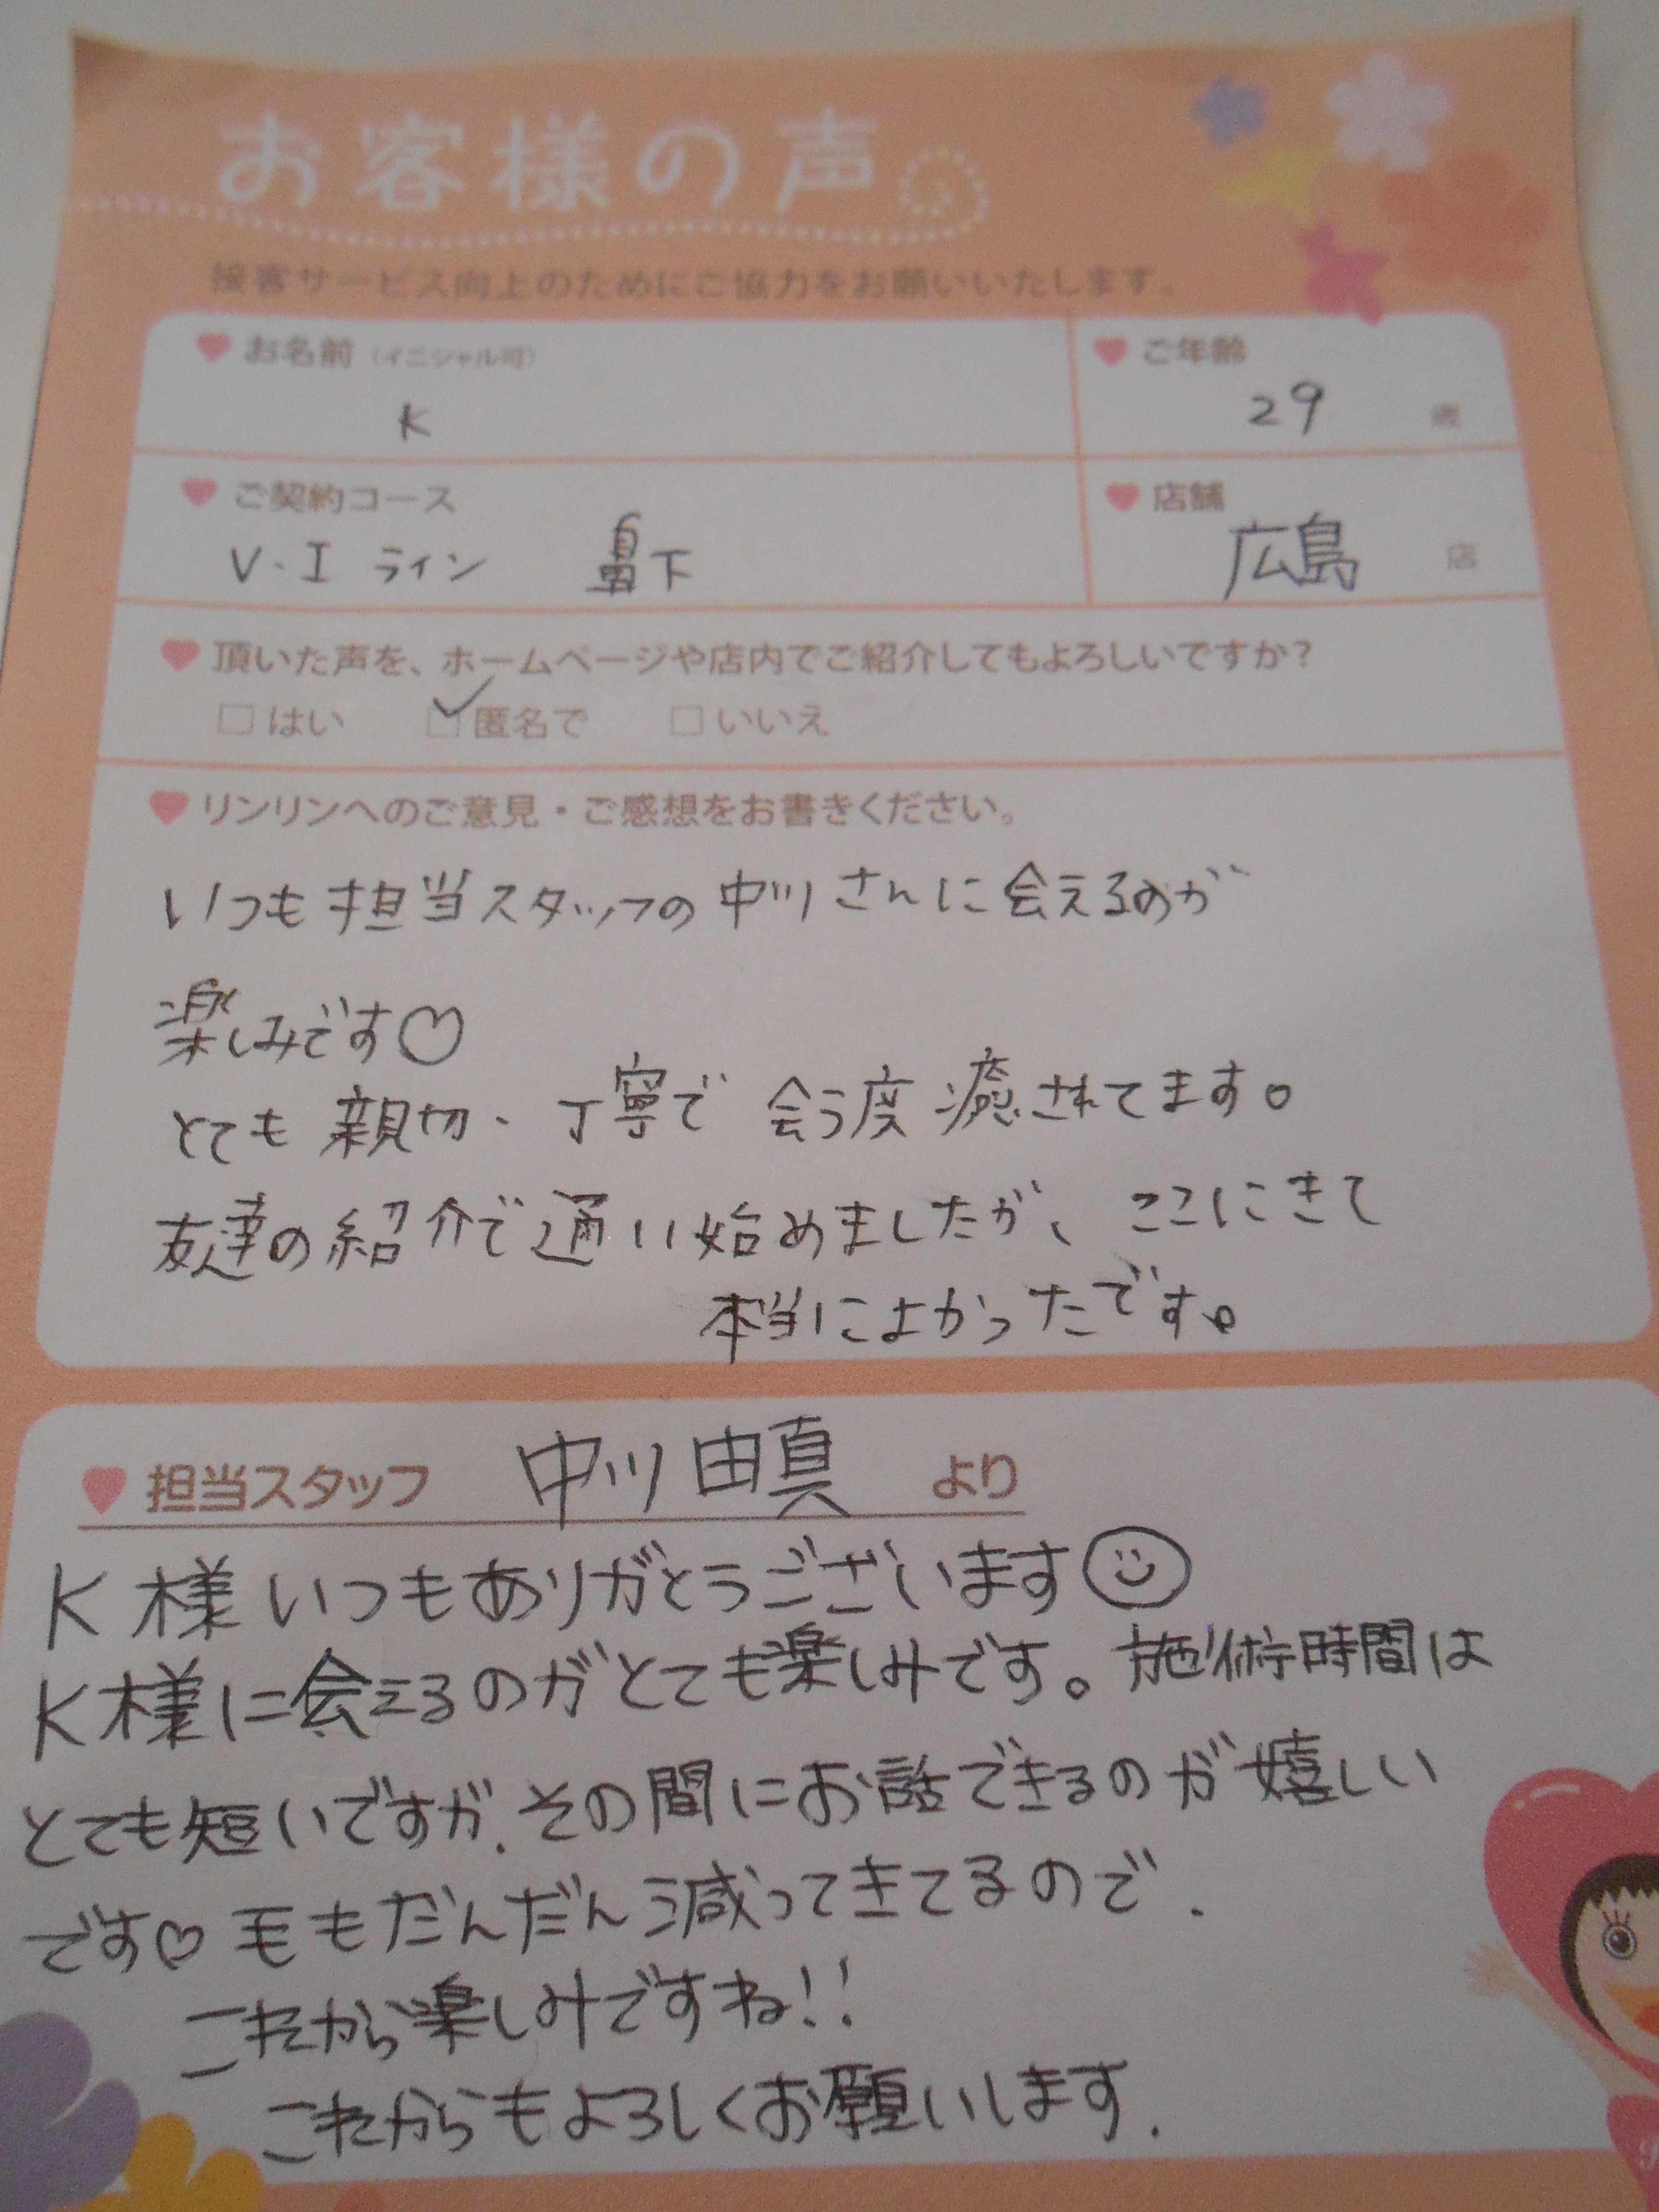 お客様の声
接客サービス向上のためにご協力をお願いいたします。
お名前（イニシャル可）
K
ご年齢
29 歳
ご契約コース
V・I ライン 鼻下
店舗
広島 店
頂いた声を、ホームページや店内でご紹介してもよろしいですか？
□はい ☑匿名で □いいえ
リンリンへのご意見・ご感想をお書きください。
いつも担当スタッフの中川さんに会えるのが
楽しみです♡
とても親切、丁寧で会う度癒されてます。
友達の紹介で通い始めましたが、ここにきて
本当によかったです。
担当スタッフ 中川由真 より
K様いつもありがとうございます☺
K様に会えるのがとても楽しみです。施術時間は
とても短いですが、その間にお話できるのが嬉しい
です♡毛もだんだん減ってきてるので、
これから楽しみですね!!
これからもよろしくお願いします.